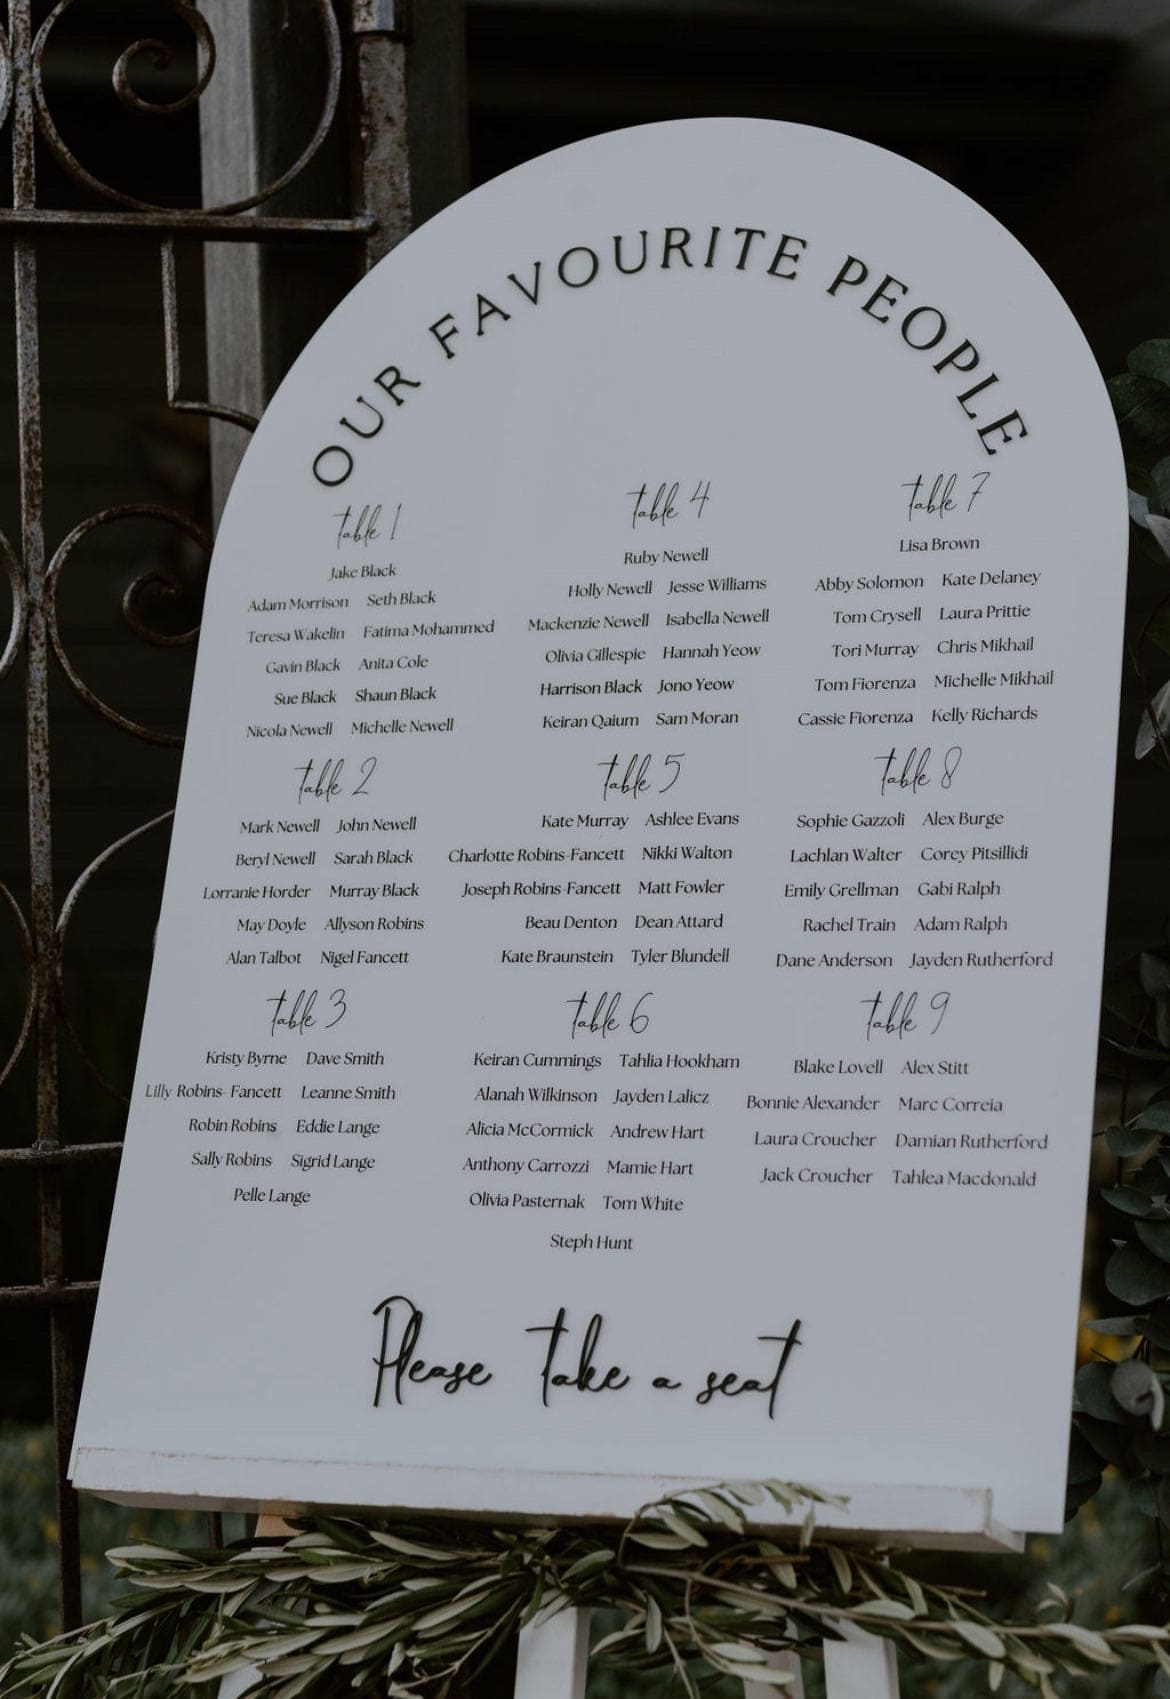 OUR FAVOURITE PEOPLE
table 1
Jake Black
Adam Morrison Seth Black
Teresa Wakelin Fatima Mohammed
Gavin Black Anita Cole
Sue Black Shaun Black
Nicola Newell Michelle Newell
table 2
Mark Newell John Newell
Beryl Newell Sarah Black
Lorranie Horder Murray Black
May Doyle Allyson Robins
Alan Talbot Nigel Fancett
table 3
Kristy Byrne Dave Smith
Lilly Robins- Fancett Leanne Smith
Robin Robins Eddie Lange
Sally Robins Sigrid Lange
Pelle Lange
table 4
Ruby Newell
Holly Newell Jesse Williams
Mackenzie Newell Isabella Newell
Olivia Gillespie Hannah Yeow
Harrison Black Jono Yeow
Keiran Qaium Sam Moran
table 5
Kate Murray Ashlee Evans
Charlotte Robins-Fancett Nikki Walton
Joseph Robins-Fancett Matt Fowler
Beau Denton Dean Attard
Kate Braunstein Tyler Blundell
table 6
Keiran Cummings Tahlia Hookham
Alanah Wilkinson Jayden Lalicz
Alicia McCormick Andrew Hart
Anthony Carrozzi Mamie Hart
Olivia Pasternak Tom White
Steph Hunt
table 7
Lisa Brown
Abby Solomon Kate Delaney
Tom Crysell Laura Prittie
Tori Murray Chris Mikhail
Tom Fiorenza Michelle Mikhail
Cassie Fiorenza Kelly Richards
table 8
Sophie Gazzoli Alex Burge
Lachlan Walter Corey Pitsillidi
Emily Grellman Gabi Ralph
Rachel Train Adam Ralph
Dane Anderson Jayden Rutherford
table 9
Blake Lovell Alex Stitt
Bonnie Alexander Marc Correia
Laura Croucher Damian Rutherford
Jack Croucher Tahlea Macdonald
Please take a seat